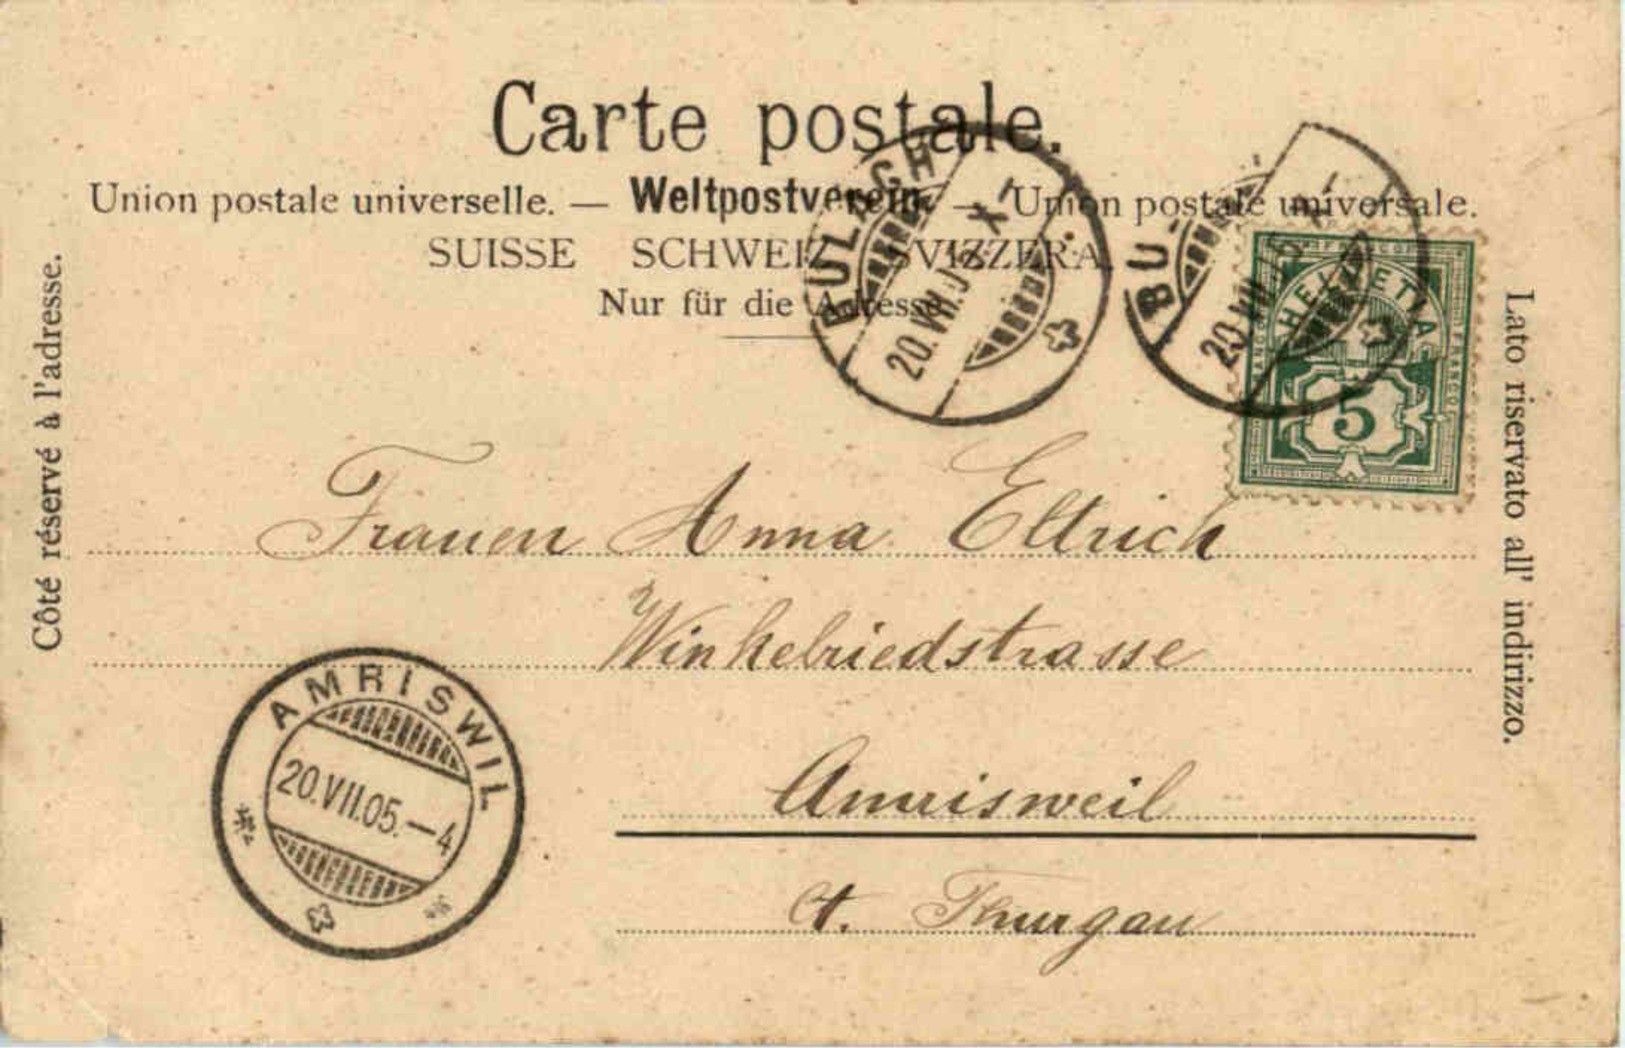 Carte postale.
Union postale universelle. — Weltpostverein. — Unión postale universale.
SUISSE SCHWEIZ SVIZZERA
Nur für die Adresse
Côté réservé à l'adresse.
Lato riservato all' indirizzo.
BÜLACH
20.VII.05 X-
BÜ
20.VII.05
HELVETIA
5
Frauen Anna Eltrich
Winkelriedstrasse
Amrisweil
Ct. Thurgau
AMRISWIL
20.VII.05.-4